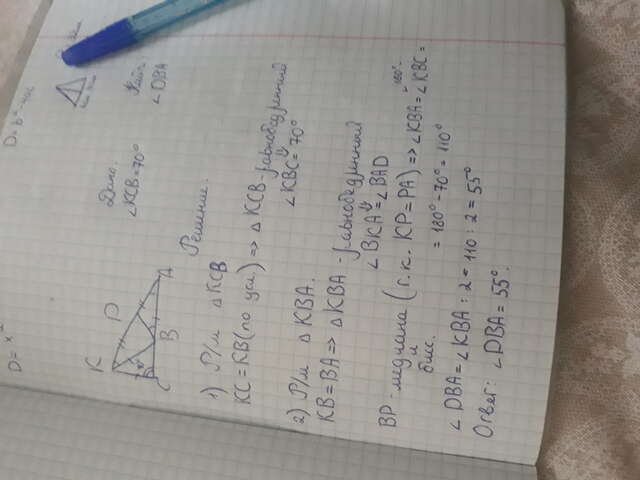 D = x²
D = b² - 4ac
K
D
C
B
A
Дано:
∠KCB = 70°
Найти:
∠DBA
Решение.
1) Р/м △KCB
KC = KB (по усл.) => △KCB - равнобедренный
⇓
∠KBC = 70°
2) Р/м △KBA.
KB = BA => △KBA - равнобедренный
⇓
∠BKA = ∠BAD
BP - медиана (т.к. KP = PA) => ∠KBA = ∠KBC =
180° -
и
бисс.
= 180° - 70° = 110°
∠DBA = ∠KBA : 2 = 110 : 2 = 55°
Ответ: ∠DBA = 55°.